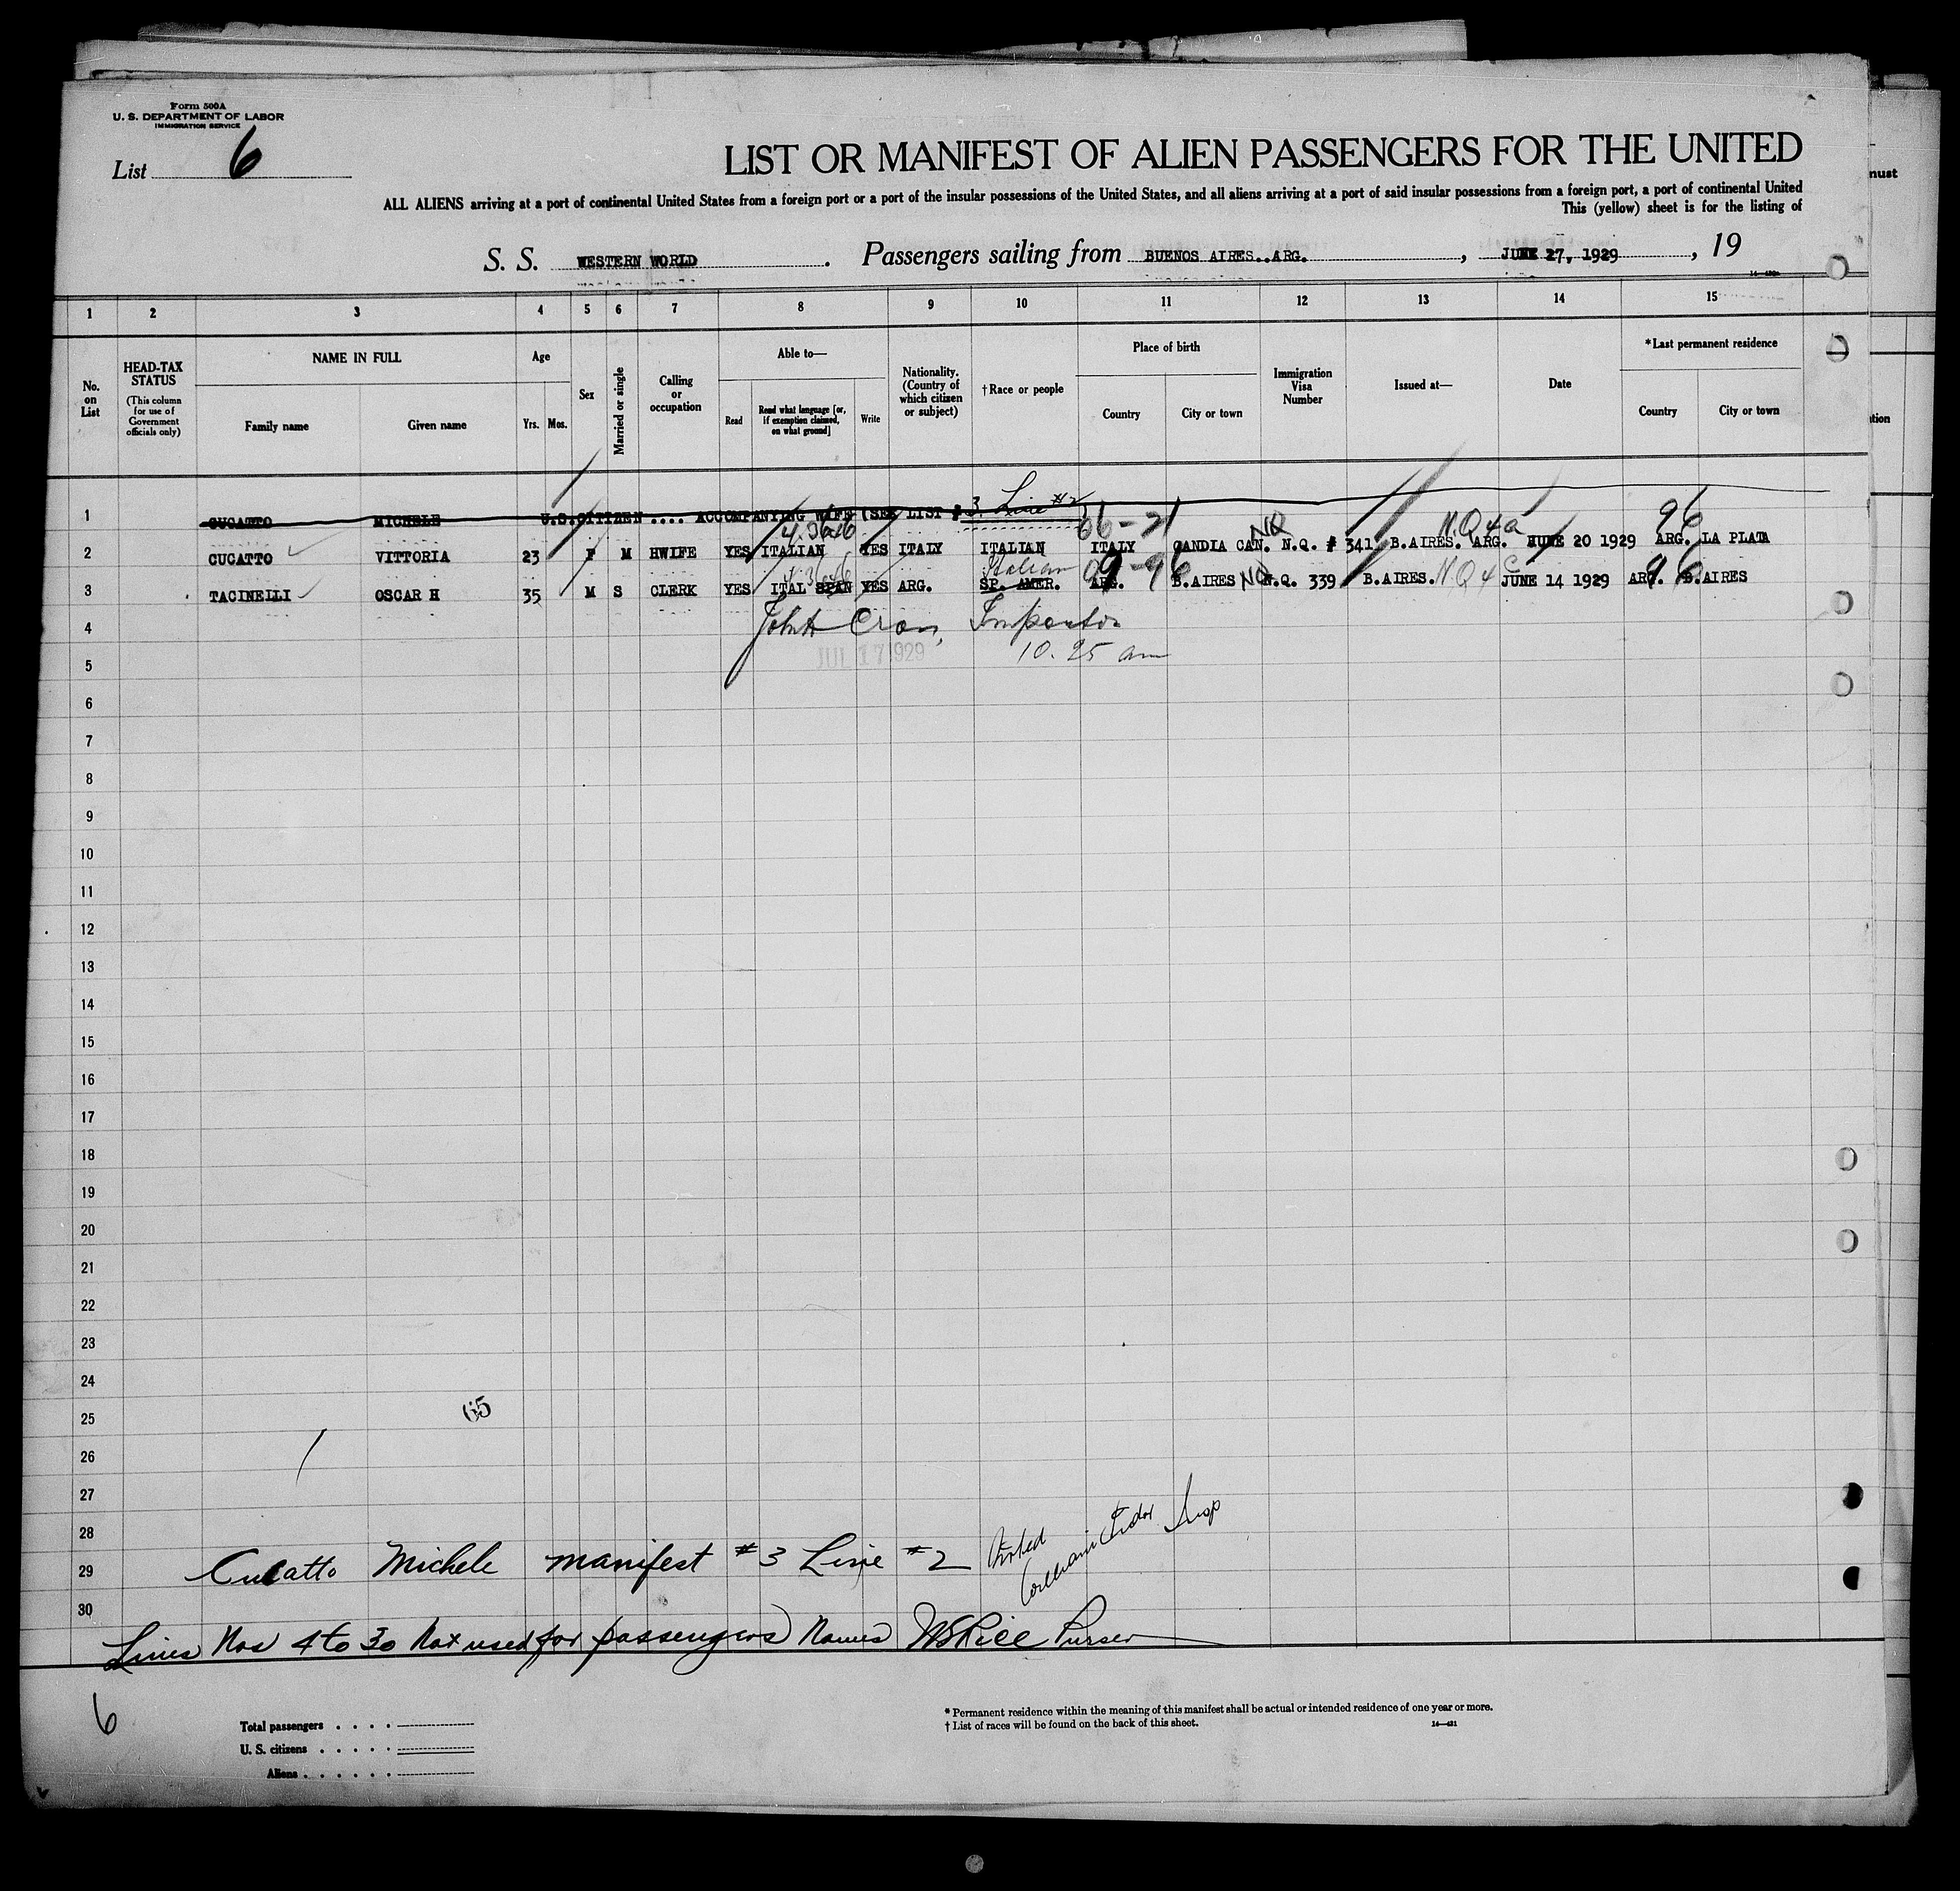 Form 500A
U. S. DEPARTMENT OF LABOR
IMMIGRATION SERVICE
List 6
LIST OR MANIFEST OF ALIEN PASSENGERS FOR THE UNITED
ALL ALIENS arriving at a port of continental United States from a foreign port or a port of the insular possessions of the United States, and all aliens arriving at a port of said insular possessions from a foreign port, a port of continental United
This (yellow) sheet is for the listing of
S. S. WESTERN WORLD . Passengers sailing from BUENOS AIRES..ARG. , JUNE 27, 1929 , 19
1 2 3 4 5 6 7 8 9 10 11 12 13 14 15
No. on List
HEAD-TAX STATUS
(This column for use of Government officials only)
NAME IN FULL
Family name Given name
Age
Yrs. Mos.
Sex
Married or single
Calling or occupation
Able to—
Read
Read what language [or, if exemption claimed, on what ground]
Write
Nationality. (Country of which citizen or subject)
†Race or people
Place of birth
Country City or town
Immigration Visa Number
Issued at—
Date
*Last permanent residence
Country City or town
1 CUCATTO MICHELE U.S.CITIZEN.... ACCOMPANYING WIFE (SEE LIST # 3. Line #2
66-21 NQ N.Q 4a 96
2 CUCATTO VITTORIA 23 F M HWIFE YES ITALIAN YES ITALY ITALIAN ITALY CANDIA CAN. N.Q. # 341 B.AIRES. ARG. JUNE 20 1929 ARG. LA PLATA
Italian 09-96 NQ N Q 4 96
3 TACINELLI OSCAR H 35 M S CLERK YES ITAL SPAN YES ARG. SP. AMER. ARG. B.AIRES N.Q. 339 B.AIRES. JUNE 14 1929 ARG. B.AIRES
4
JUL 17 1929
10.25 am
5
6
7
8
9
10
11
12
13
14
15
16
17
18
19
20
21
22
23
24
65
25
26
27
28
29 Cucatto Michele manifest #3 Line #2
30
Lines Nos 4 to 30 Not used for passengers Names Purser
6
Total passengers . . . .
U. S. citizens . . . . .
Aliens . . . . . .
* Permanent residence within the meaning of this manifest shall be actual or intended residence of one year or more.
† List of races will be found on the back of this sheet.
14—421
must